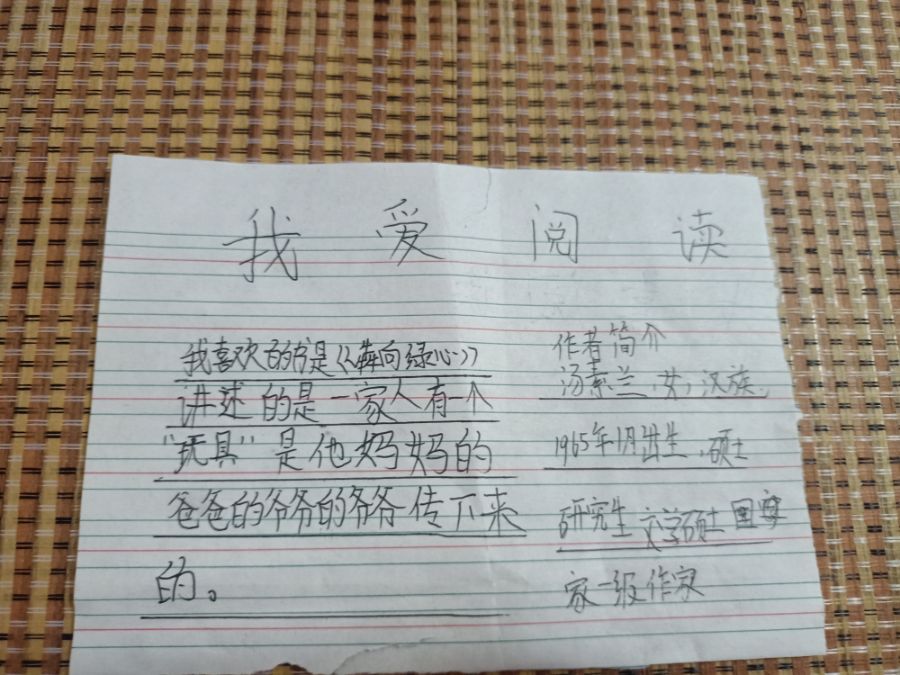 我爱阅读
我喜欢的书是《犇向绿心》
讲述的是一家人有一个
“玩具”是他妈妈的
爸爸的爷爷的爷爷传下来
的。
作者简介
汤素兰,女,汉族,
1965年1月出生,硕士
研究生 文学硕士 国
家一级作家